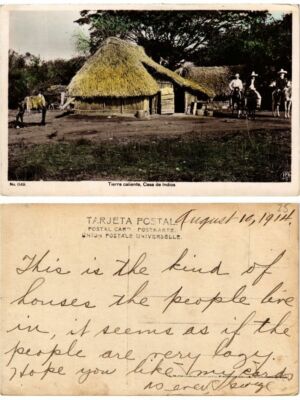 No. 1149.
Tierra caliente, Casa de Indios
TARJETA POSTAL
POSTAL CARD. POSTKARTE.
UNION POSTALE UNIVERSELLE.
August 10, 1914.
This is the kind of
houses the people live
in, it seems as if the
people are very lazy.
Hope you like my cards
as ever,